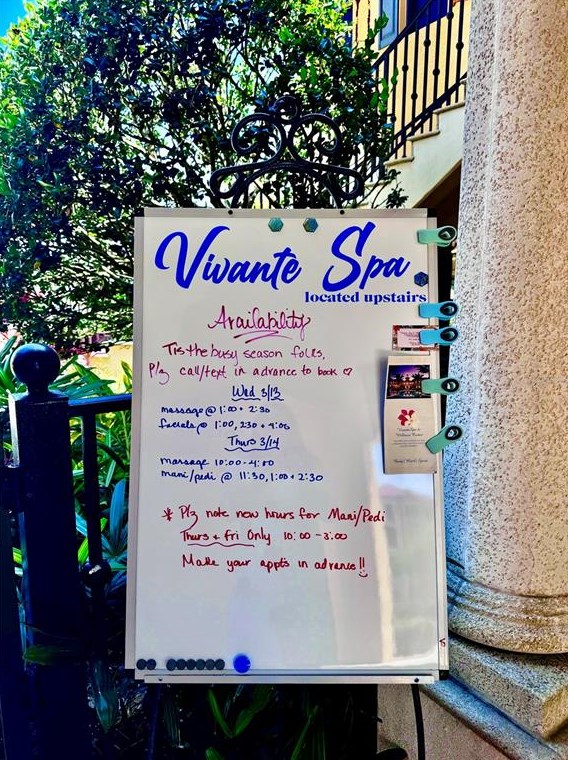 Vivante Spa
located upstairs
Availability
Tis the busy season folks,
Plz call/text in advance to book ♡
Wed 3/13
massage @ 1:00 + 2:30
facials @ 1:00, 2:30 + 4:00
Thurs 3/14
massage 10:00 - 4:00
mani/pedi @ 11:30, 1:00 + 2:30
* Plz note new hours for Mani/Pedi
Thurs + Fri Only 10:00 - 3:00
Make your appts in advance!!